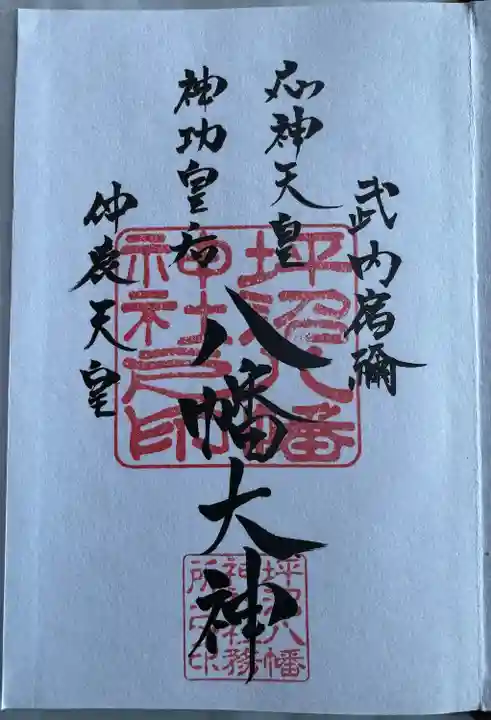 武内宿彌
応神天皇
神功皇后
仲哀天皇
八幡大神
坪沼八幡
神社之印
坪沼八幡
神社社務
所之印